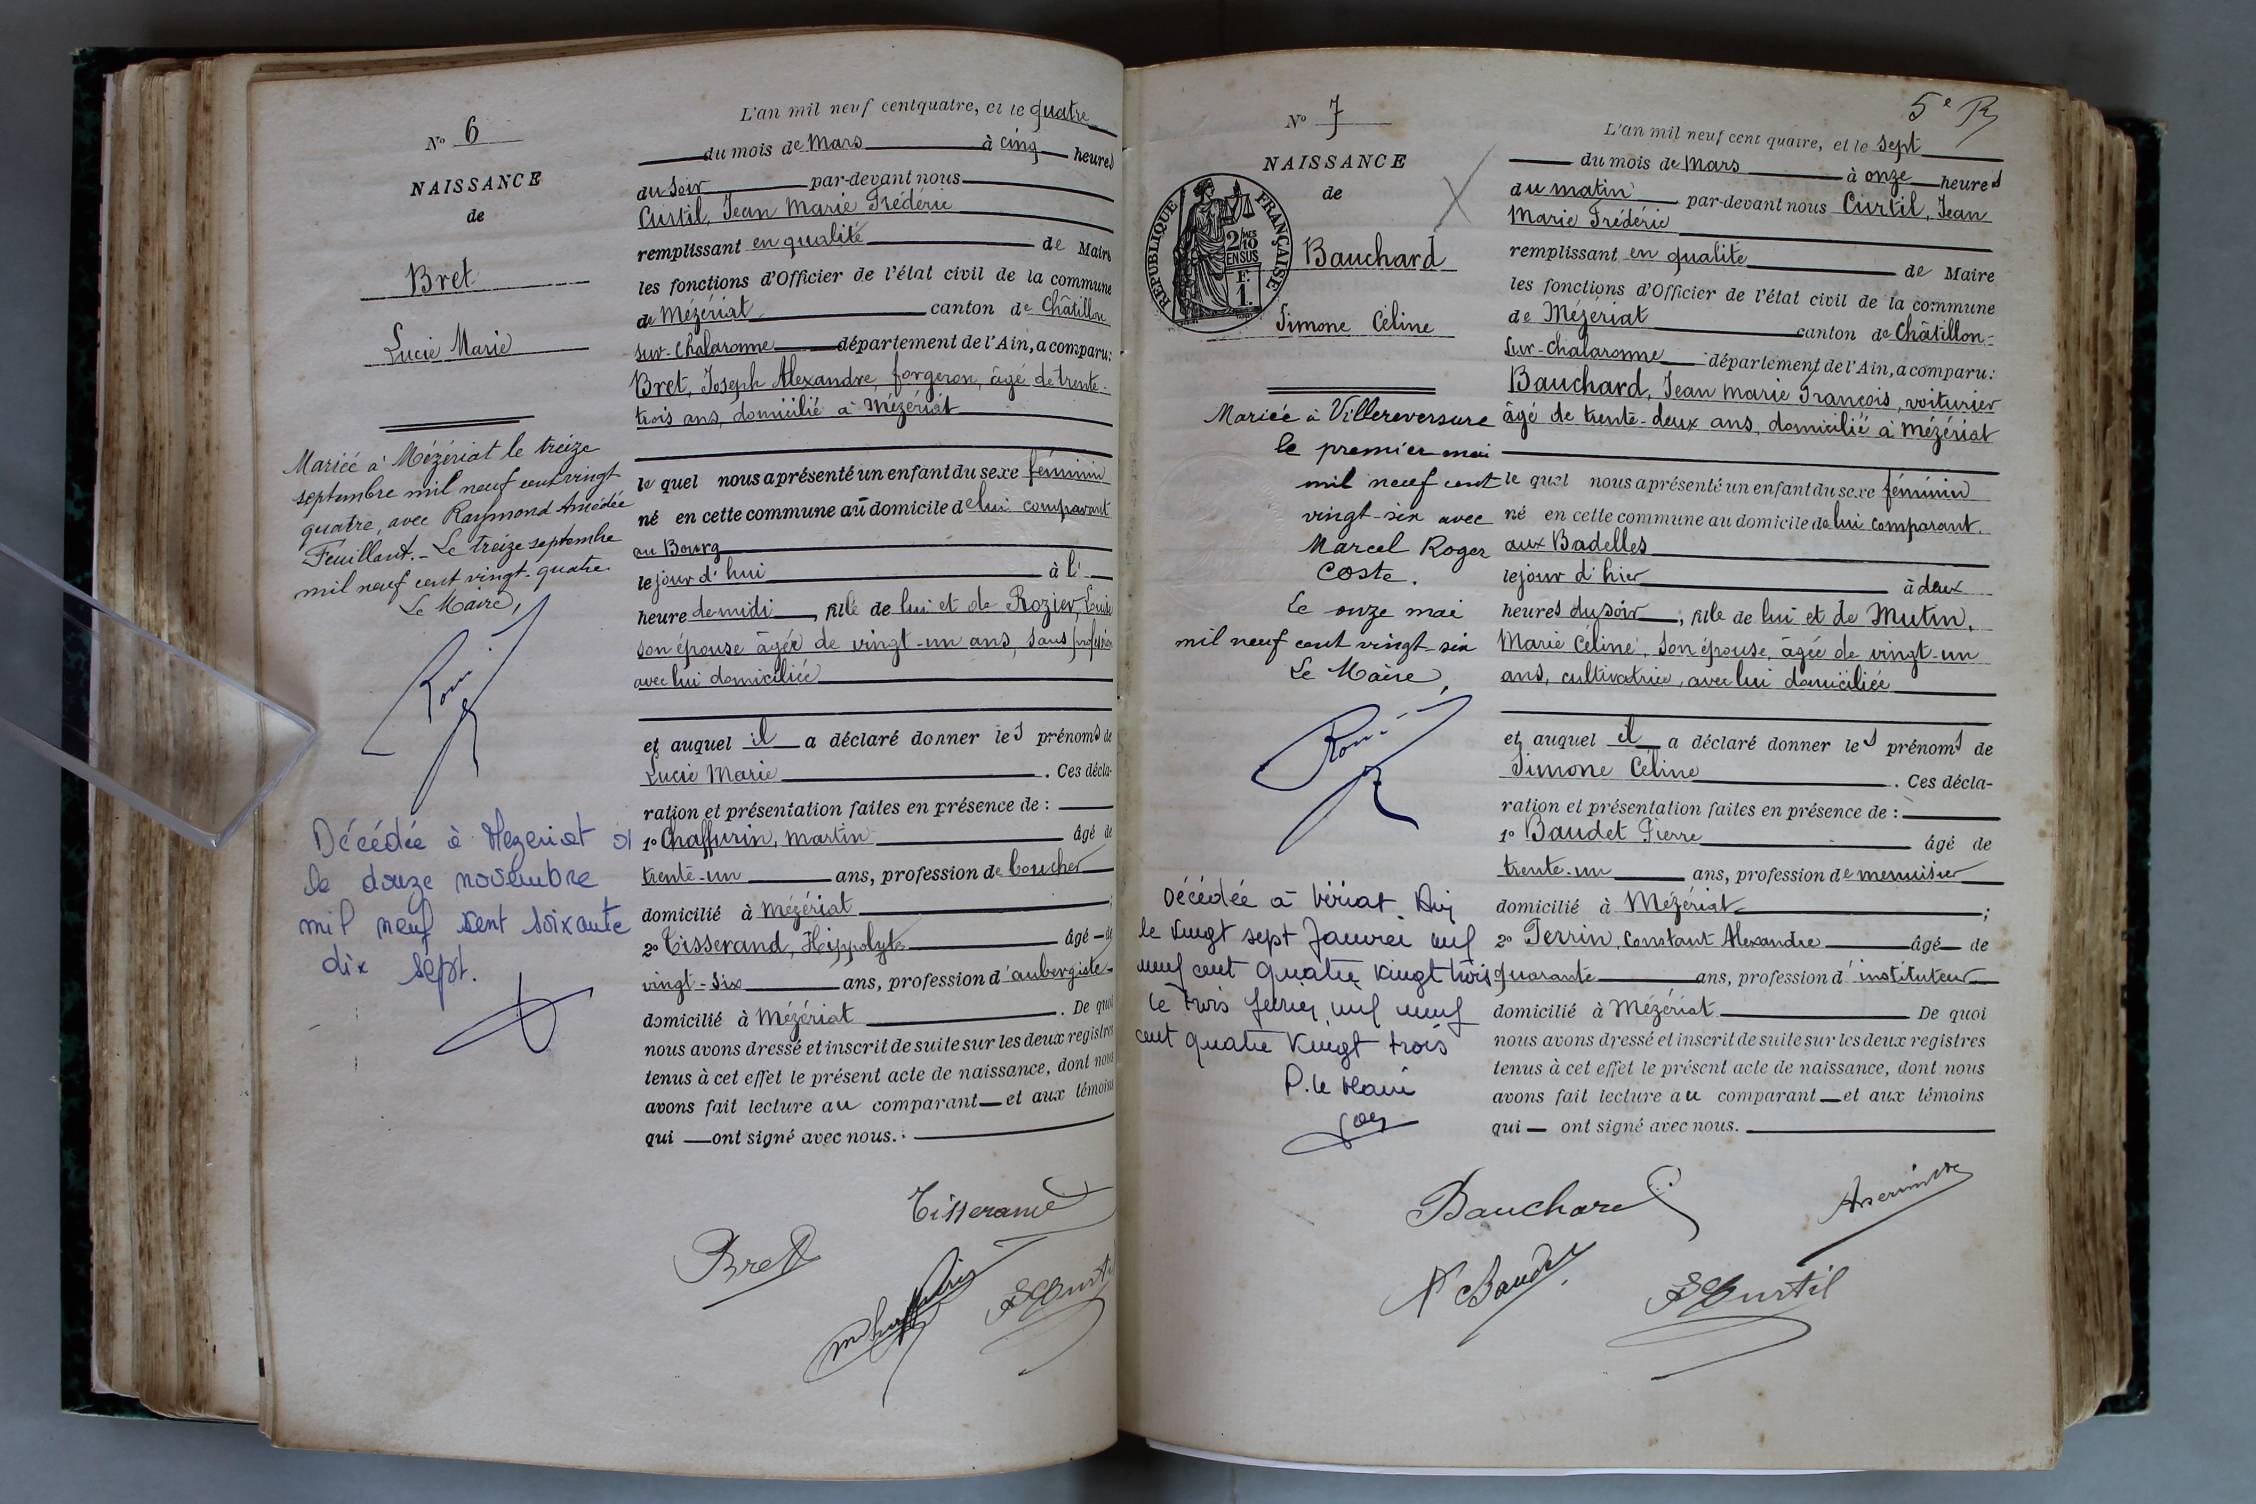 N° 6
NAISSANCE
de
Bret
Lucie Marie
Mariée à Mézériat le treize
septembre mil neuf cent vingt
quatre, avec Raymond Amédée
Feuilland. - Le treize septembre
mil neuf cent vingt-quatre.
Le Maire,
Décédée à Mezeriat 01
le douze novembre
mil neuf cent soixante
dix sept.
L'an mil neuf cent quatre, et le quatre
du mois de Mars à cinq heures
du soir par-devant nous
Curtil, Jean Marie Frédéric
remplissant en qualité de Maire
les fonctions d'Officier de l'état civil de la commune
de Mézériat canton de Châtillon
sur-Chalaronne département de l'Ain, a comparu:
Bret, Joseph Alexandre, forgeron, âgé de trente-
trois ans, domicilié à Mézériat
le quel nous a présenté un enfant du sexe féminin
né en cette commune au domicile de lui comparant
au Bourg
le jour d'hui à l'
heure de midi, fille de lui et de Rozier, Louise
son épouse âgée de vingt-un ans, sans profession
avec lui domiciliée
et auquel il a déclaré donner les prénoms de
Lucie Marie. Ces décla-
ration et présentation faites en présence de :
1° Chaffurin, Martin âgé de
trente-un ans, profession de boucher
domicilié à Mézériat ;
2° Tisserand, Hippolyte âgé de
vingt-six ans, profession d'aubergiste
domicilié à Mézériat. De quoi
nous avons dressé et inscrit de suite sur les deux registres
tenus à cet effet le présent acte de naissance, dont nous
avons fait lecture au comparant et aux témoins
qui ont signé avec nous.
Tisserand
Bret
Curtil
5e R
N° 7
NAISSANCE
de
RÉPUBLIQUE FRANÇAISE
2/10 MES
EN SUS
F.
1.
Bauchard
Simone Céline
Mariée à Villereversure
le premier mai
mil neuf cent
vingt-six avec
Marcel Roger
Coste.
Le onze mai
mil neuf cent vingt-six
Le Maire,
Décédée à Viriat Ain
le vingt sept Janvier mil
neuf cent quatre vingt trois
le trois février mil neuf
cent quatre vingt trois
P. le Maire
L'an mil neuf cent quatre, et le sept
du mois de Mars à onze heures
du matin par-devant nous Curtil, Jean
Marie Frédéric
remplissant en qualité de Maire
les fonctions d'Officier de l'état civil de la commune
de Mézériat canton de Châtillon-
sur-Chalaronne département de l'Ain, a comparu:
Bauchard, Jean Marie François, voiturier
âgé de trente-deux ans, domicilié à Mézériat
le quel nous a présenté un enfant du sexe féminin
né en cette commune au domicile de lui comparant.
aux Badelles
le jour d'hier à deux
heures du soir, fille de lui et de Mutin,
Marie Céline, son épouse, âgée de vingt-un
ans, cultivatrice, avec lui domiciliée
et auquel il a déclaré donner les prénoms de
Simone Céline. Ces décla-
ration et présentation faites en présence de :
1° Baudet Pierre âgé de
trente-un ans, profession de menuisier
domicilié à Mézériat ;
2° Perrin, Constant Alexandre âgé de
quarante ans, profession d'instituteur
domicilié à Mézériat. De quoi
nous avons dressé et inscrit de suite sur les deux registres
tenus à cet effet le présent acte de naissance, dont nous
avons fait lecture au comparant et aux témoins
qui ont signé avec nous.
Bauchard
Baudet
Curtil